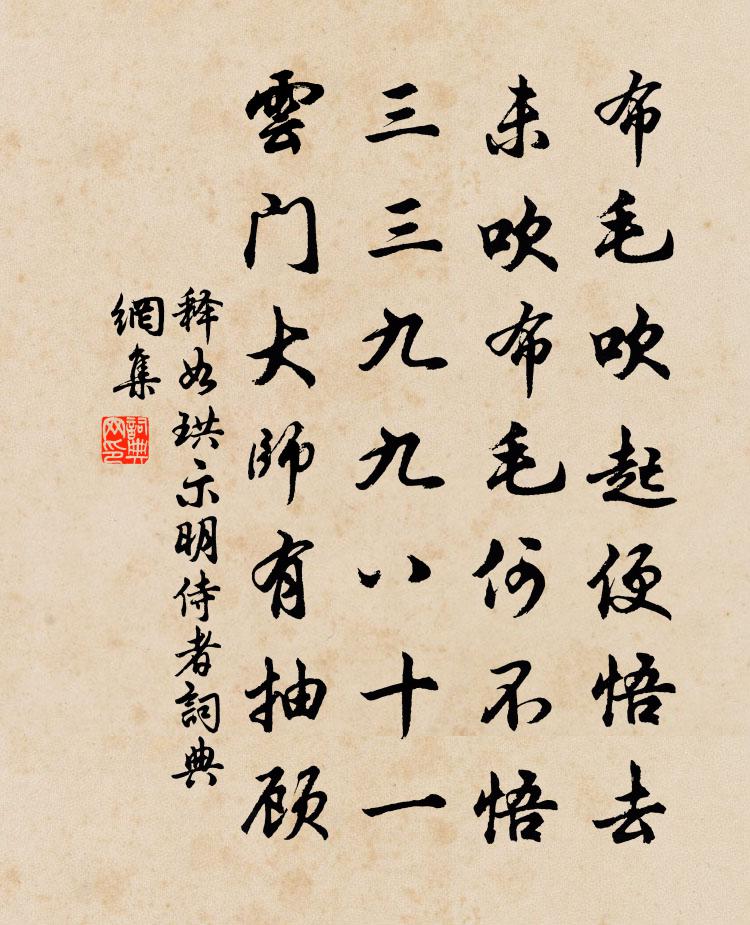 布毛吹起便悟去
未吹布毛何不悟
三三九九八十一
雲门大师有抽顾
释如珙示明侍者詞典
網集
詞典
网印